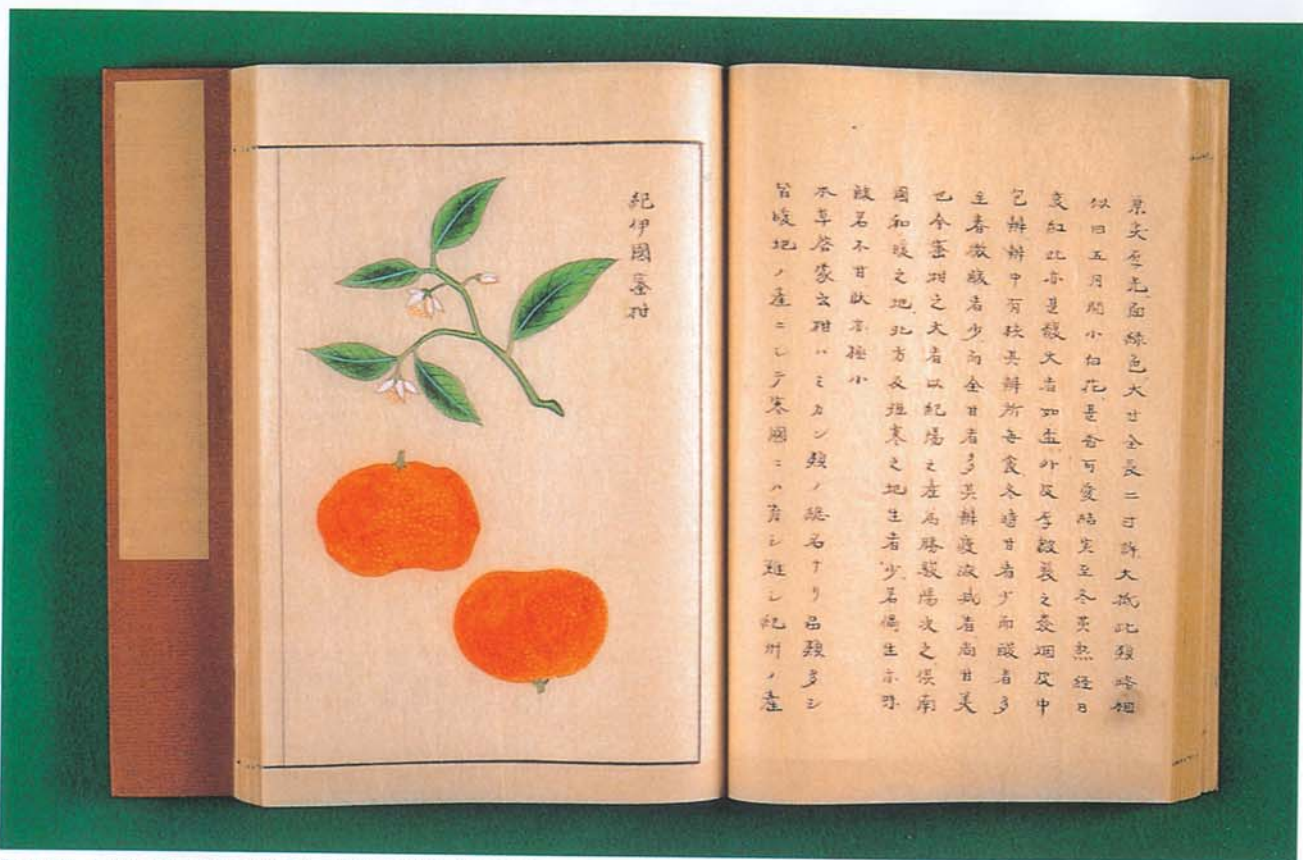 葉尖厚光面緑色大寸全長二寸許大抵此類略相
似曰五月開小白花甚香可愛結実至冬黄熟経日
変紅此亦甚酸大者如盃外皮厚皺裏之嚢細皮中
包辨辨中有核其辨所毎食冬時甘者少而酸者多
至春微酸者少而全甘者多其辨疲液減者尚甘美
也今蜜柑之大者以紀陽之産為勝駿陽次之倶南
國和暖之地北方及極寒之地生者少若偶生亦味
酸若不甘状亦極小
本草啓蒙云柑ハミカン類ノ総名ナリ品類多シ
皆暖地ノ産ニシテ寒國ニハ育シ難シ紀州ノ産
紀伊國蜜柑